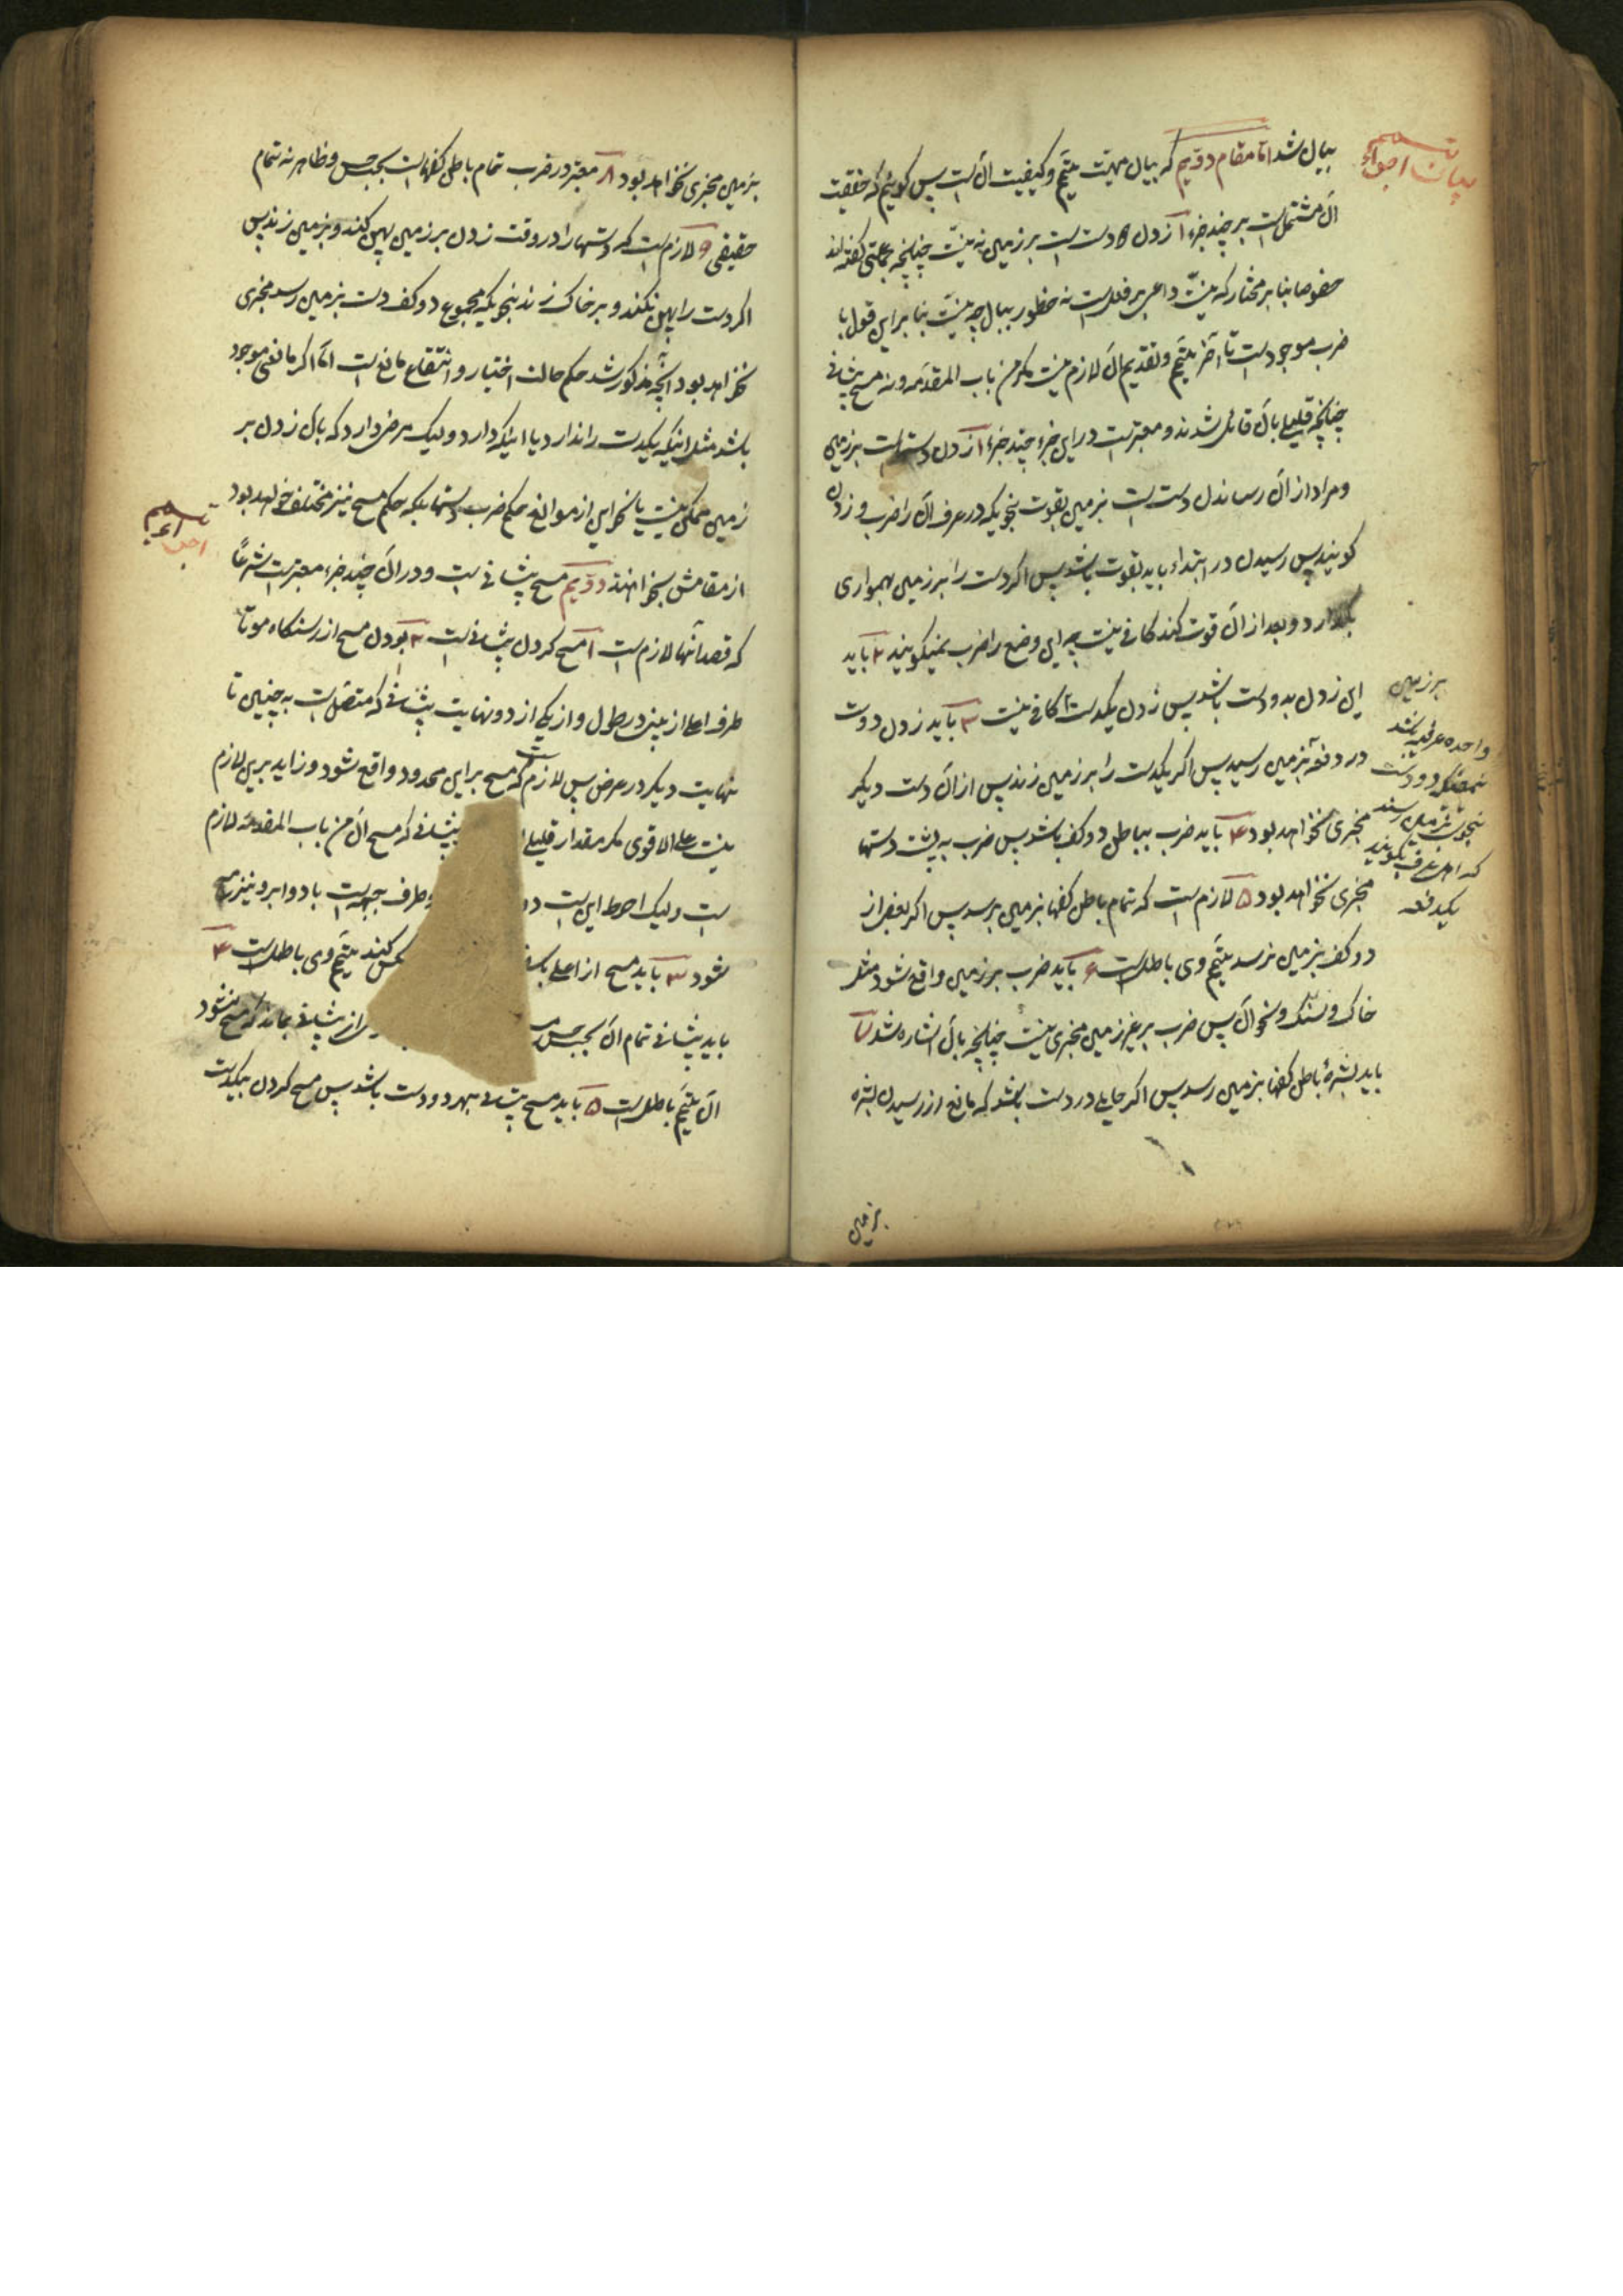 بیان اجزاء
تیمم
بیان شد اما مقام دویم که بیان مهیت تیمّم و کیفیت آن است پس کوئیم که حقیقت
آن مشتمل است بر چند جزء ۱ زدن دست است بر زمین نه نیّت چنانچه جماعتی کفته‌اند
خصوصا بنا بر مختار که نیّت داعی بر فعلست نه خطور ببال چه نیّت بنا براین قول با
ضرب موجود است تا آخر تیمّم و تقدیم آن لازم نیست مکر من باب المقدّمه و نه مسح پیشانی
چنانچه قلیلی بآن قائل شدند و معتبر است در این جزء چند جزء ۱ زدن دست است بر زمین
و مراد از آن رساندن دست است بزمین بقوت بنحویکه در عرف آن را ضرب و زدن
کویند پس رسیدن در ابتداء باید بقوت باشد پس اکر دست را بر زمین بهمواری
بکذارد و بعد از آن قوت کند کافی نیست چه این وضع را ضرب نمیکویند ۲ باید
این زدن بدو دست باشد پس زدن یکدست کافی نیست ۳ باید زدن دو دست
در دفعه بزمین رسید پس اکر یکدست را بر زمین زند پس از آن دست دیکر
مجزی نخواهد بود ۴ باید ضرب بباطن دو کف باشد پس ضرب به پشت دستها
مجزی نخواهد بود ۵ لازم است که تمام باطن کفها بزمین برسد پس اکر بعض از
دو کف بزمین نرسد تیمّم وی باطلست ۶ باید ضرب بر زمین واقع شود مثل
خاک و سنک و نحو آن پس ضرب بر غیر زمین مجزی نیست چنانچه بآن اشاره شد ۷
باید بشرهٔ باطن کفها بزمین رسد پس اکر حایلی در دست باشد که مانع از رسیدن بشره
بر زمین
واحده عرفیه باشد
دو دست
بزمین رسند
که اهل عرف بکویند
یکدفعه
بزمین
بزمین مجزی نخواهد بود ۸ معتبر در ضرب تمام باطن کفهاست بحسب حس و ظاهر نه تمام
حقیقی ۹ لازم است که دستها را در وقت زدن بر زمین پهن کند و بزمین زند پس
اکر دست را پهن نکند و بر خاک زند بنحویکه مجموع دو کف دست بزمین رسد مجزی
نخواهد بود آنچه مذکور شد حکم حالت اختیار و انتفاء مانع است امّا اکر مانعی موجود
باشد مثل اینکه یکدست را ندارد یا اینکه دارد و لیک مرض دارد که بآن زدن بر
زمین ممکن نیست یا نحو این از موانع حکم ضرب دستها بلکه حکم مسح نیز مختلف خواهد بود
از مقامش بخواهند دویم مسح پیشانی است و در آن چند جزء معتبر است شرعاً
که قصد آنها لازم است ۱ مسح کردن پیشانی است ۲ بودن مسح از رستنکاه مو تا
طرف اعلا از بینی در طول و از یکی از دو نهایت پیشانی که متصل است به جبین تا
نهایت دیکر در عرض پس لازم است که مسح بر این محدود واقع شود و زاید بر این لازم
نیست علی الاقوی مکر مقدار قلیلی پیشانی که مسح آن من باب المقدمه لازم
است و لیک احوط این است و طرف جبهه است با دو ابرو نیز مسح
شود ۳ باید مسح از اعلی کند تیمّم وی باطلست ۴
باید پیشانی تمام آن بحسب حس از پیشانی بماند که مسح نشود
آن تیمّم باطلست ۵ باید مسح پیشانی بهر دو دست باشد پس مسح کردن بیکدست
تیمم